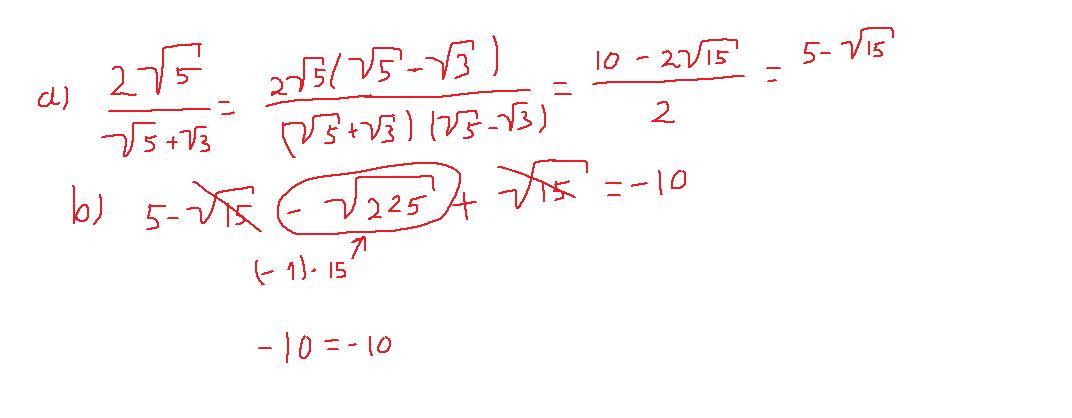 a) 2√5 / (√5+√3) = 2√5(√5-√3) / (√5+√3)(√5-√3) = (10-2√15) / 2 = 5-√15
b) 5-√15 - √225 + √15 = -10
(-1)·15
-10=-10